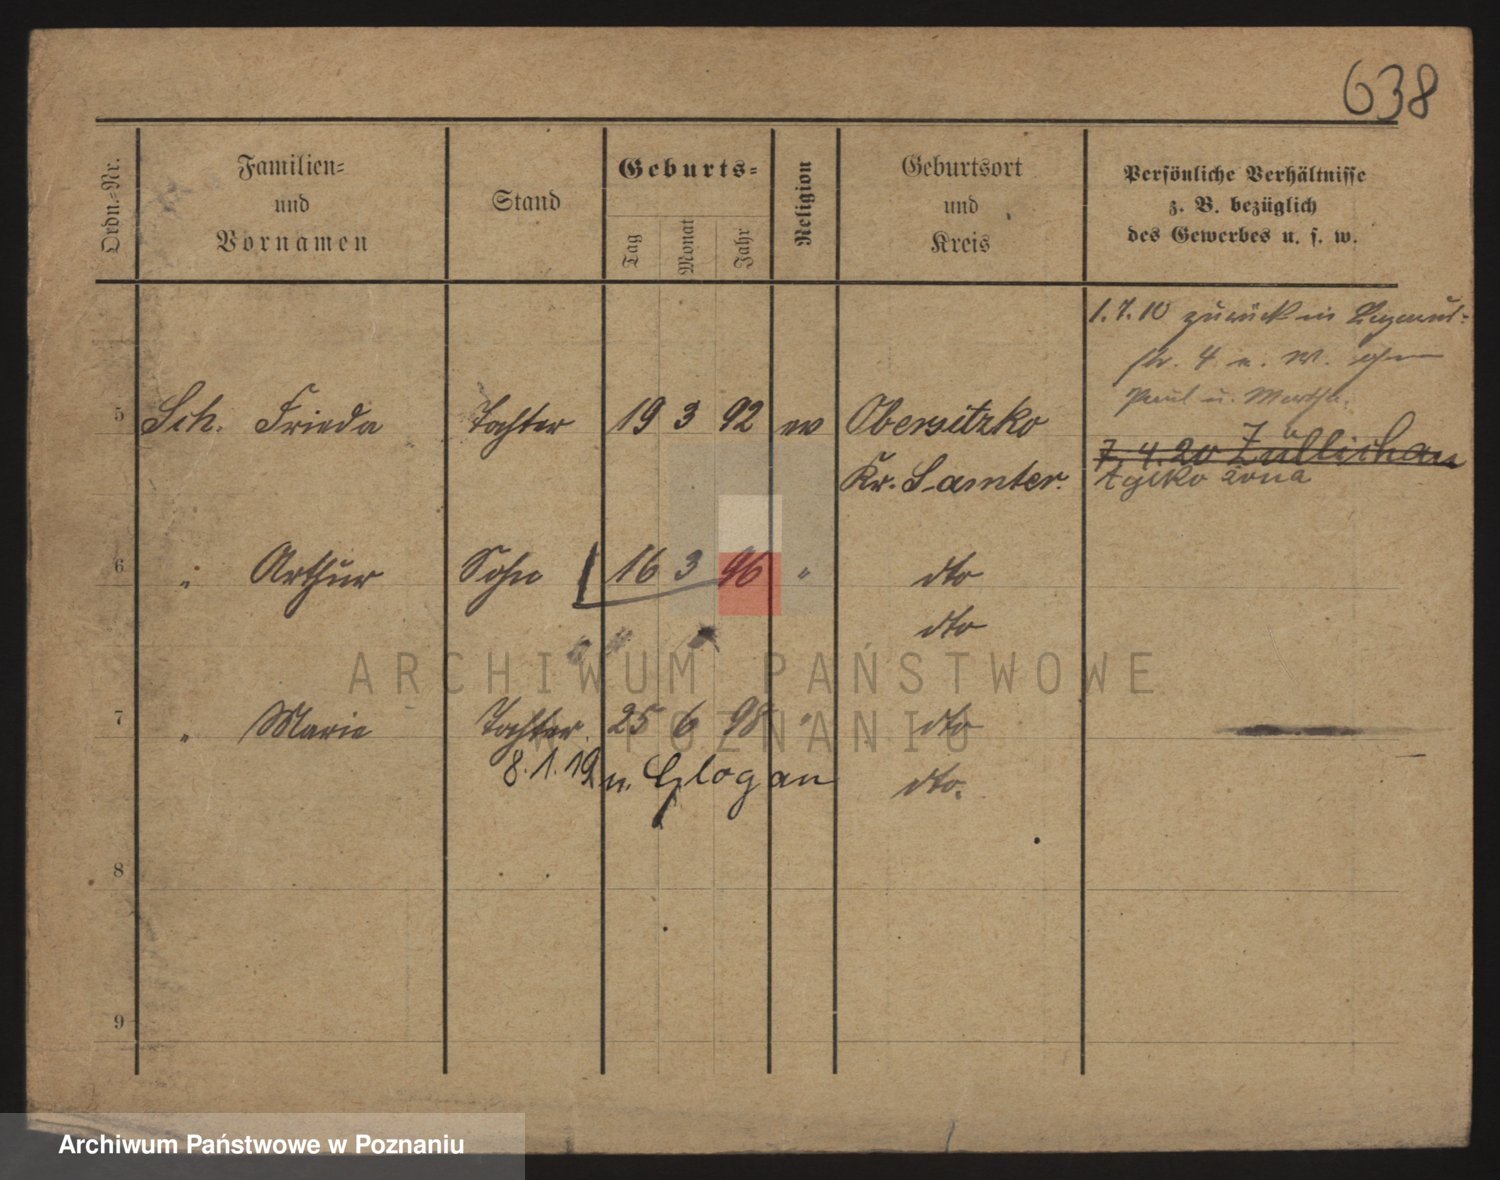 638
Ordn.-Nr.
Familien-
und
Vornamen
Stand
Geburts-
Tag
Monat
Jahr
Religion
Geburtsort
und
Kreis
Persönliche Verhältnisse
z. B. bezüglich
des Gewerbes u. s. w.
1.7.10 zurück in
str. 4 u. W.
Paul u. Martha.
5 Sch. Frieda Tochter 19 3 92 ev Obersitzko
7.4.20 Züllichau
Kr. Samter.
tylko żona
6 " Arthur Sohn 16 3 96 " dto
dto
ARCHIWUM PAŃSTWOWE
W POZNANIU
7 " Marie Tochter. 25 6 98 " dto
8.1.19 n. Glogau
dto.
8
9
Archiwum Państwowe w Poznaniu